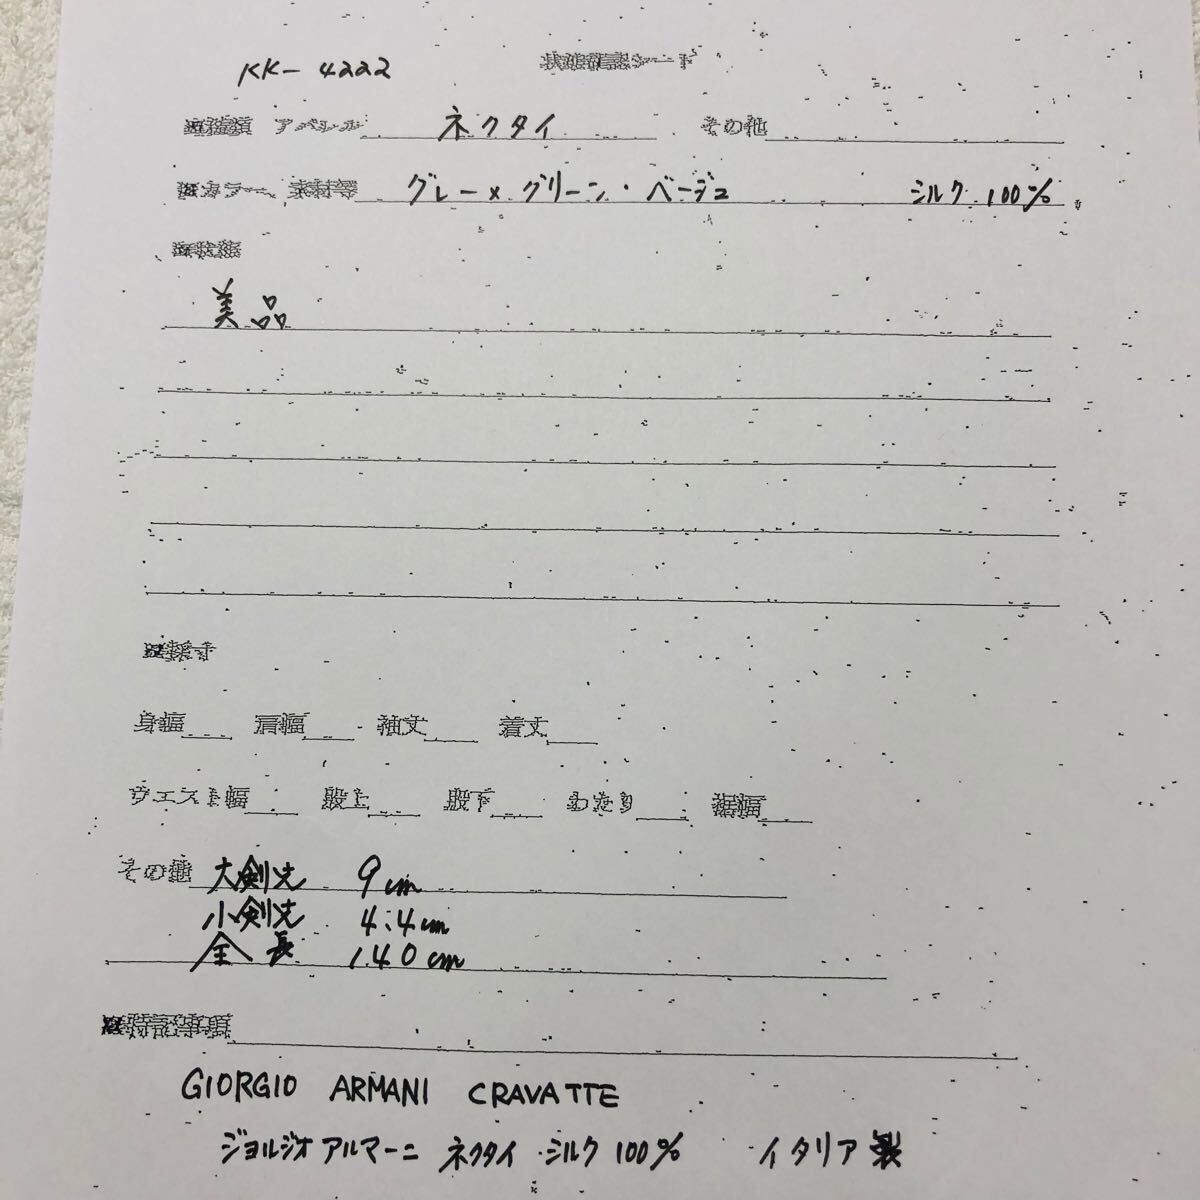 KK-4222 状態確認シート
※種類 アパレル ネクタイ その他
※カラー、素材等 グレー×グリーン・ベージュ シルク 100%
※状態
美品
※採寸
身幅 肩幅 袖丈 着丈
ウエスト幅 股上 股下 わたり 裾幅
その他 大剣丈 9cm
小剣丈 4.4cm
全長 140cm
※特記事項
GIORGIO ARMANI CRAVATTE
ジョルジオ アルマーニ ネクタイ・シルク 100% イタリア製